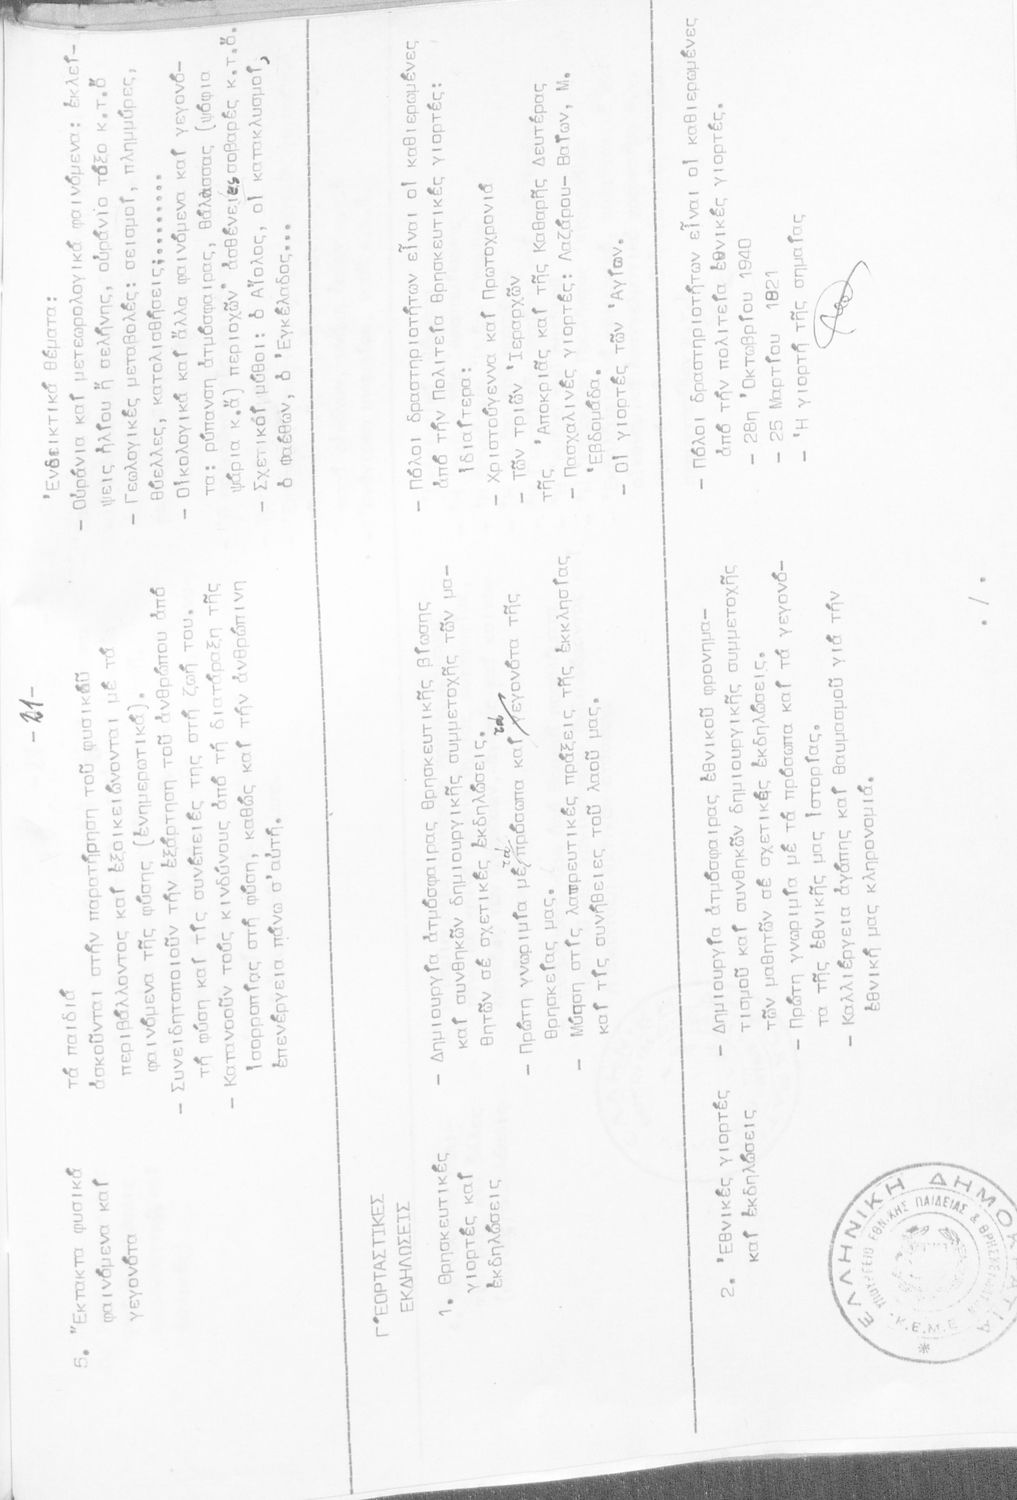 -21-
5. Ἔκτακτα φυσικά
φαινόμενα καί
γεγονότα
τά παιδιά
ἀσκοῦνται στήν παρατήρηση τοῦ φυσικοῦ
περιβάλλοντος καί ἐξοικειώνονται μέ τά
φαινόμενα τῆς φύσης (ἐνημερωτικά).
- Συνειδητοποιοῦν τήν ἐξάρτηση τοῦ ἀνθρώπου ἀπό
τή φύση καί τίς συνέπειές της στή ζωή του.
- Κατανοοῦν τούς κινδύνους ἀπό τή διατάραξη τῆς
ἰσορροπίας στή φύση, καθώς καί τήν ἀνθρώπινη
ἐπενέργεια πάνω σ'αὐτή.
Ἐνδεικτικά θέματα:
- Οὐράνια καί μετεωρολογικά φαινόμενα: ἐκλεί-
ψεις ἡλίου ἤ σελήνης, οὐράνιο τόξο κ.τ.ὅ
- Γεωλογικές μεταβολές: σεισμοί, πλημμύρες,
θύελλες, κατολισθήσεις;........
- Οἰκολογικά καί ἄλλα φαινόμενα καί γεγονό-
τα: ρύπανση ἀτμόσφαιρας, θάλασσας (ψόφια
ψάρια κ.ἄ) περιοχῶν ἀσθένειες σοβαρές κ.τ.ὅ.
- Σχετικοί μῦθοι: ὁ Αἴολος, οἱ κατακλυσμοί,
ὁ Φαέθων, ὁ Ἐγκέλαδος...
Γ ἙΟΡΤΑΣΤΙΚΕΣ
ΕΚΔΗΛΩΣΕΙΣ
1. Θρησκευτικές
γιορτές καί
ἐκδηλώσεις
- Δημιουργία ἀτμόσφαιρας θρησκευτικῆς βίωσης
καί συνθηκῶν δημιουργικῆς συμμετοχῆς τῶν μα-
θητῶν σέ σχετικές ἐκδηλώσεις.
- Πρώτη γνωριμία μέ τά πρόσωπα καί τά γεγονότα τῆς
θρησκείας μας.
- Μύηση στίς λατρευτικές πράξεις τῆς ἐκκλησίας
καί τίς συνήθειες τοῦ λαοῦ μας.
- Πόλοι δραστηριοτήτων εἶναι οἱ καθιερωμένες
ἀπό τήν Πολιτεία θρησκευτικές γιορτές:
ἰδιαίτερα:
- Χριστούγεννα καί Πρωτοχρονιά
- Τῶν τριῶν Ἱεραρχῶν
τῆς Ἀποκριᾶς καί τῆς Καθαρῆς Δευτέρας
- Πασχαλινές γιορτές: Λαζάρου- Βαΐων, Μ.
Ἑβδομάδα.
- Οἱ γιορτές τῶν Ἁγίων.
2. Ἐθνικές γιορτές
καί ἐκδηλώσεις
- Δημιουργία ἀτμόσφαιρας ἐθνικοῦ φρονημα-
τισμοῦ καί συνθηκῶν δημιουργικῆς συμμετοχῆς
τῶν μαθητῶν σέ σχετικές ἐκδηλώσεις.
- Πρώτη γνωριμία μέ τά πρόσωπα καί τά γεγονό-
τα τῆς ἐθνικῆς μας ἱστορίας.
- Καλλιέργεια ἀγάπης καί θαυμασμοῦ γιά τήν
ἐθνική μας κληρονομιά.
- Πόλοι δραστηριοτήτων εἶναι οἱ καθιερωμένες
ἀπό τήν πολιτεία ἐθνικές γιορτές.
- 28η Ὀκτωβρίου 1940
- 25 Μαρτίου 1821
- Ἡ γιορτή τῆς σημαίας
./.
ΕΛΛΗΝΙΚΗ ΔΗΜΟΚΡΑΤΙΑ
ΥΠΟΥΡΓΕΙΟ ΕΘΝ.ΚΗΣ ΠΑΙΔΕΙΑΣ & ΘΡΗΣΚΕΥΜΑΤΩΝ
Κ.Ε.Μ.Ε